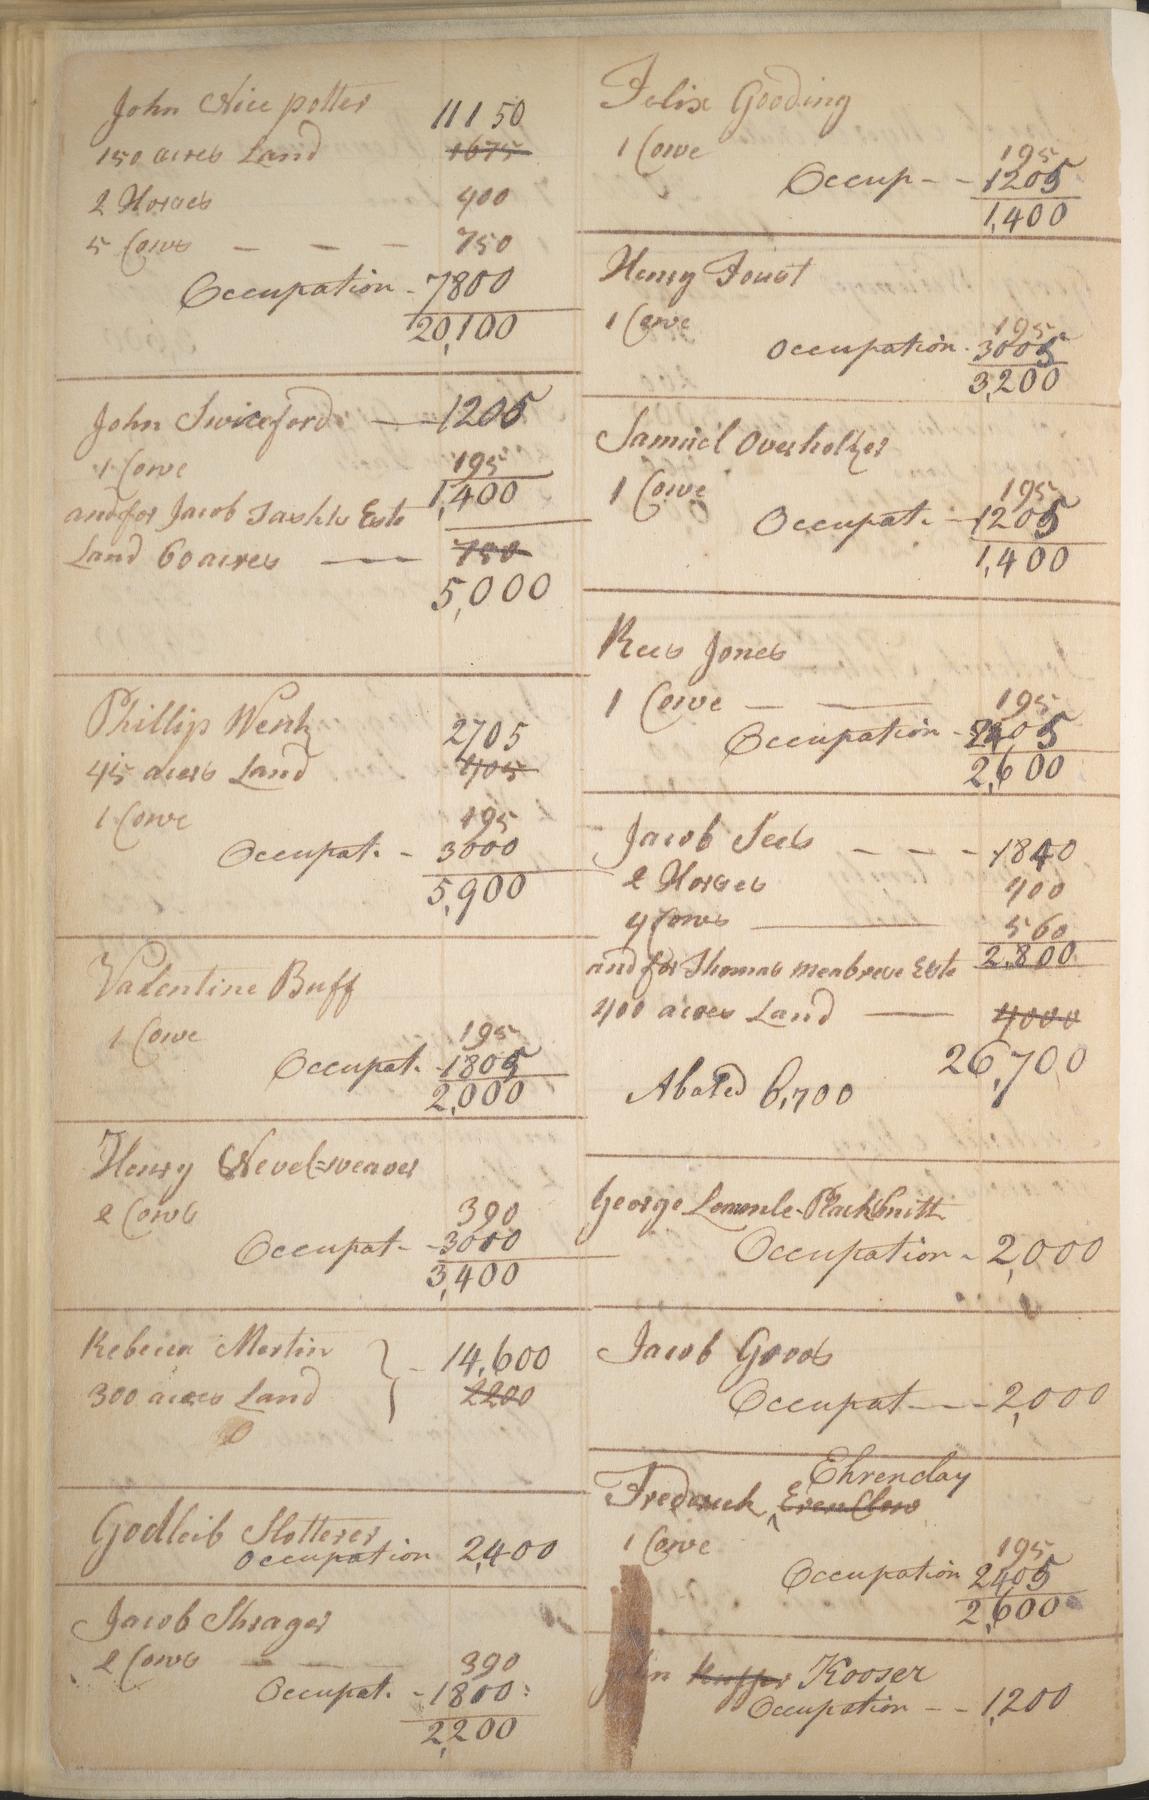 John Nice potter 11150
150 acres Land 1675
2 Horses 400
5 Cows — — — 750
Occupation - 7800
20,100
John Swiceford — 1205
1 Cowe 195
1,400
and for Jacob Este
Land 60 acres — 750
5,000
Phillip 2705
45 acres Land 405
1 Cowe 195
Occupat. - 3000
5,900
Valentine Buff
1 Cowe 195
Occupat. - 1805
2,000
Henry Nevel=weaver
2 Cows 390
Occupat - - 3010
3,400
Rebecca Martin } - 14,600
300 acres Land 2200
Godleib Slotterer
Occupation 2,400
Jacob Shrager
2 Cows — — 390
Occupat. - 1810:
2,200
Felix Gooding
1 Cowe 195
Occup - - 1205
1,400
Henry Foust
1 Cowe 195
Occupation - 3005
3,200
Samuel Overholtzer
1 Cowe 195
Occupat. - 1205
1,400
Rees Jones
1 Cowe — — 195
Occupation - 2405
2,600
Jacob Seeb — — — 1840
2 Horses 400
4 Cows — 560
and for Thomas Este 2,800
400 acres Land — 4000
26,700
Abated 6,700
George BlackSmith
Occupation - 2,000
Jacob Goods
Occupat - - - 2,000
Ehrenday
Frederick ^
1 Cowe 195
Occupation 2405
2,600
John Kooser
Occupation - - 1,200